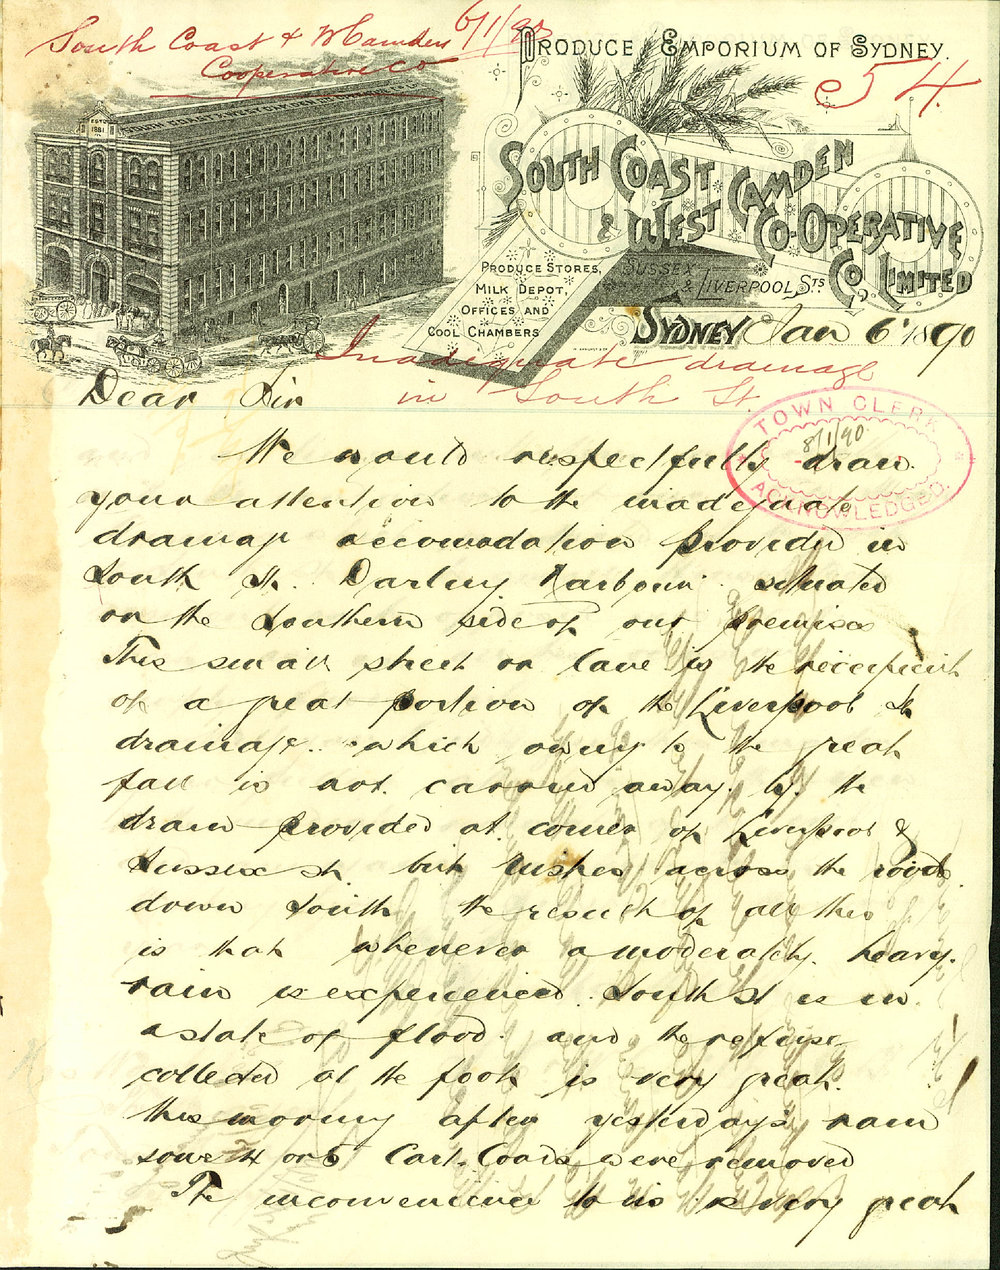 South Coast & W Camden 6/1/90
Cooperative Co
PRODUCE EMPORIUM OF SYDNEY.
54
ESTD
1881
SOUTH COAST
& WEST CAMDEN
CO-OPERATIVE
CO. LIMITED
PRODUCE STORES,
MILK DEPOT,
OFFICES AND
COOL CHAMBERS
SUSSEX
& LIVERPOOL STS.
SYDNEY Jan 6 1890
Inadequate drainage
in South St.
TOWN CLERK
8/1/90
ACKNOWLEDGED.
Dear Sir
We would respectfully draw
your attention to the inadequate
drainage accomodation provided in
South St. Darling Harbour situated
on the Southern side of our premises
This small street or lane is the receipient
of a great portion of the Liverpool St
drainage which owing to the great
fall is not carried away by the
drain provided at corner of Liverpool &
Sussex St. but rushes across the road
down South the result of all this
is that whenever a moderately heavy
rain is experienced South St is in
a state of flood and the refuse
collected at the foot is very great.
this morning after yesterday's rain
some 4 or 5 Cart Loads were removed
The inconvenience to us is very great